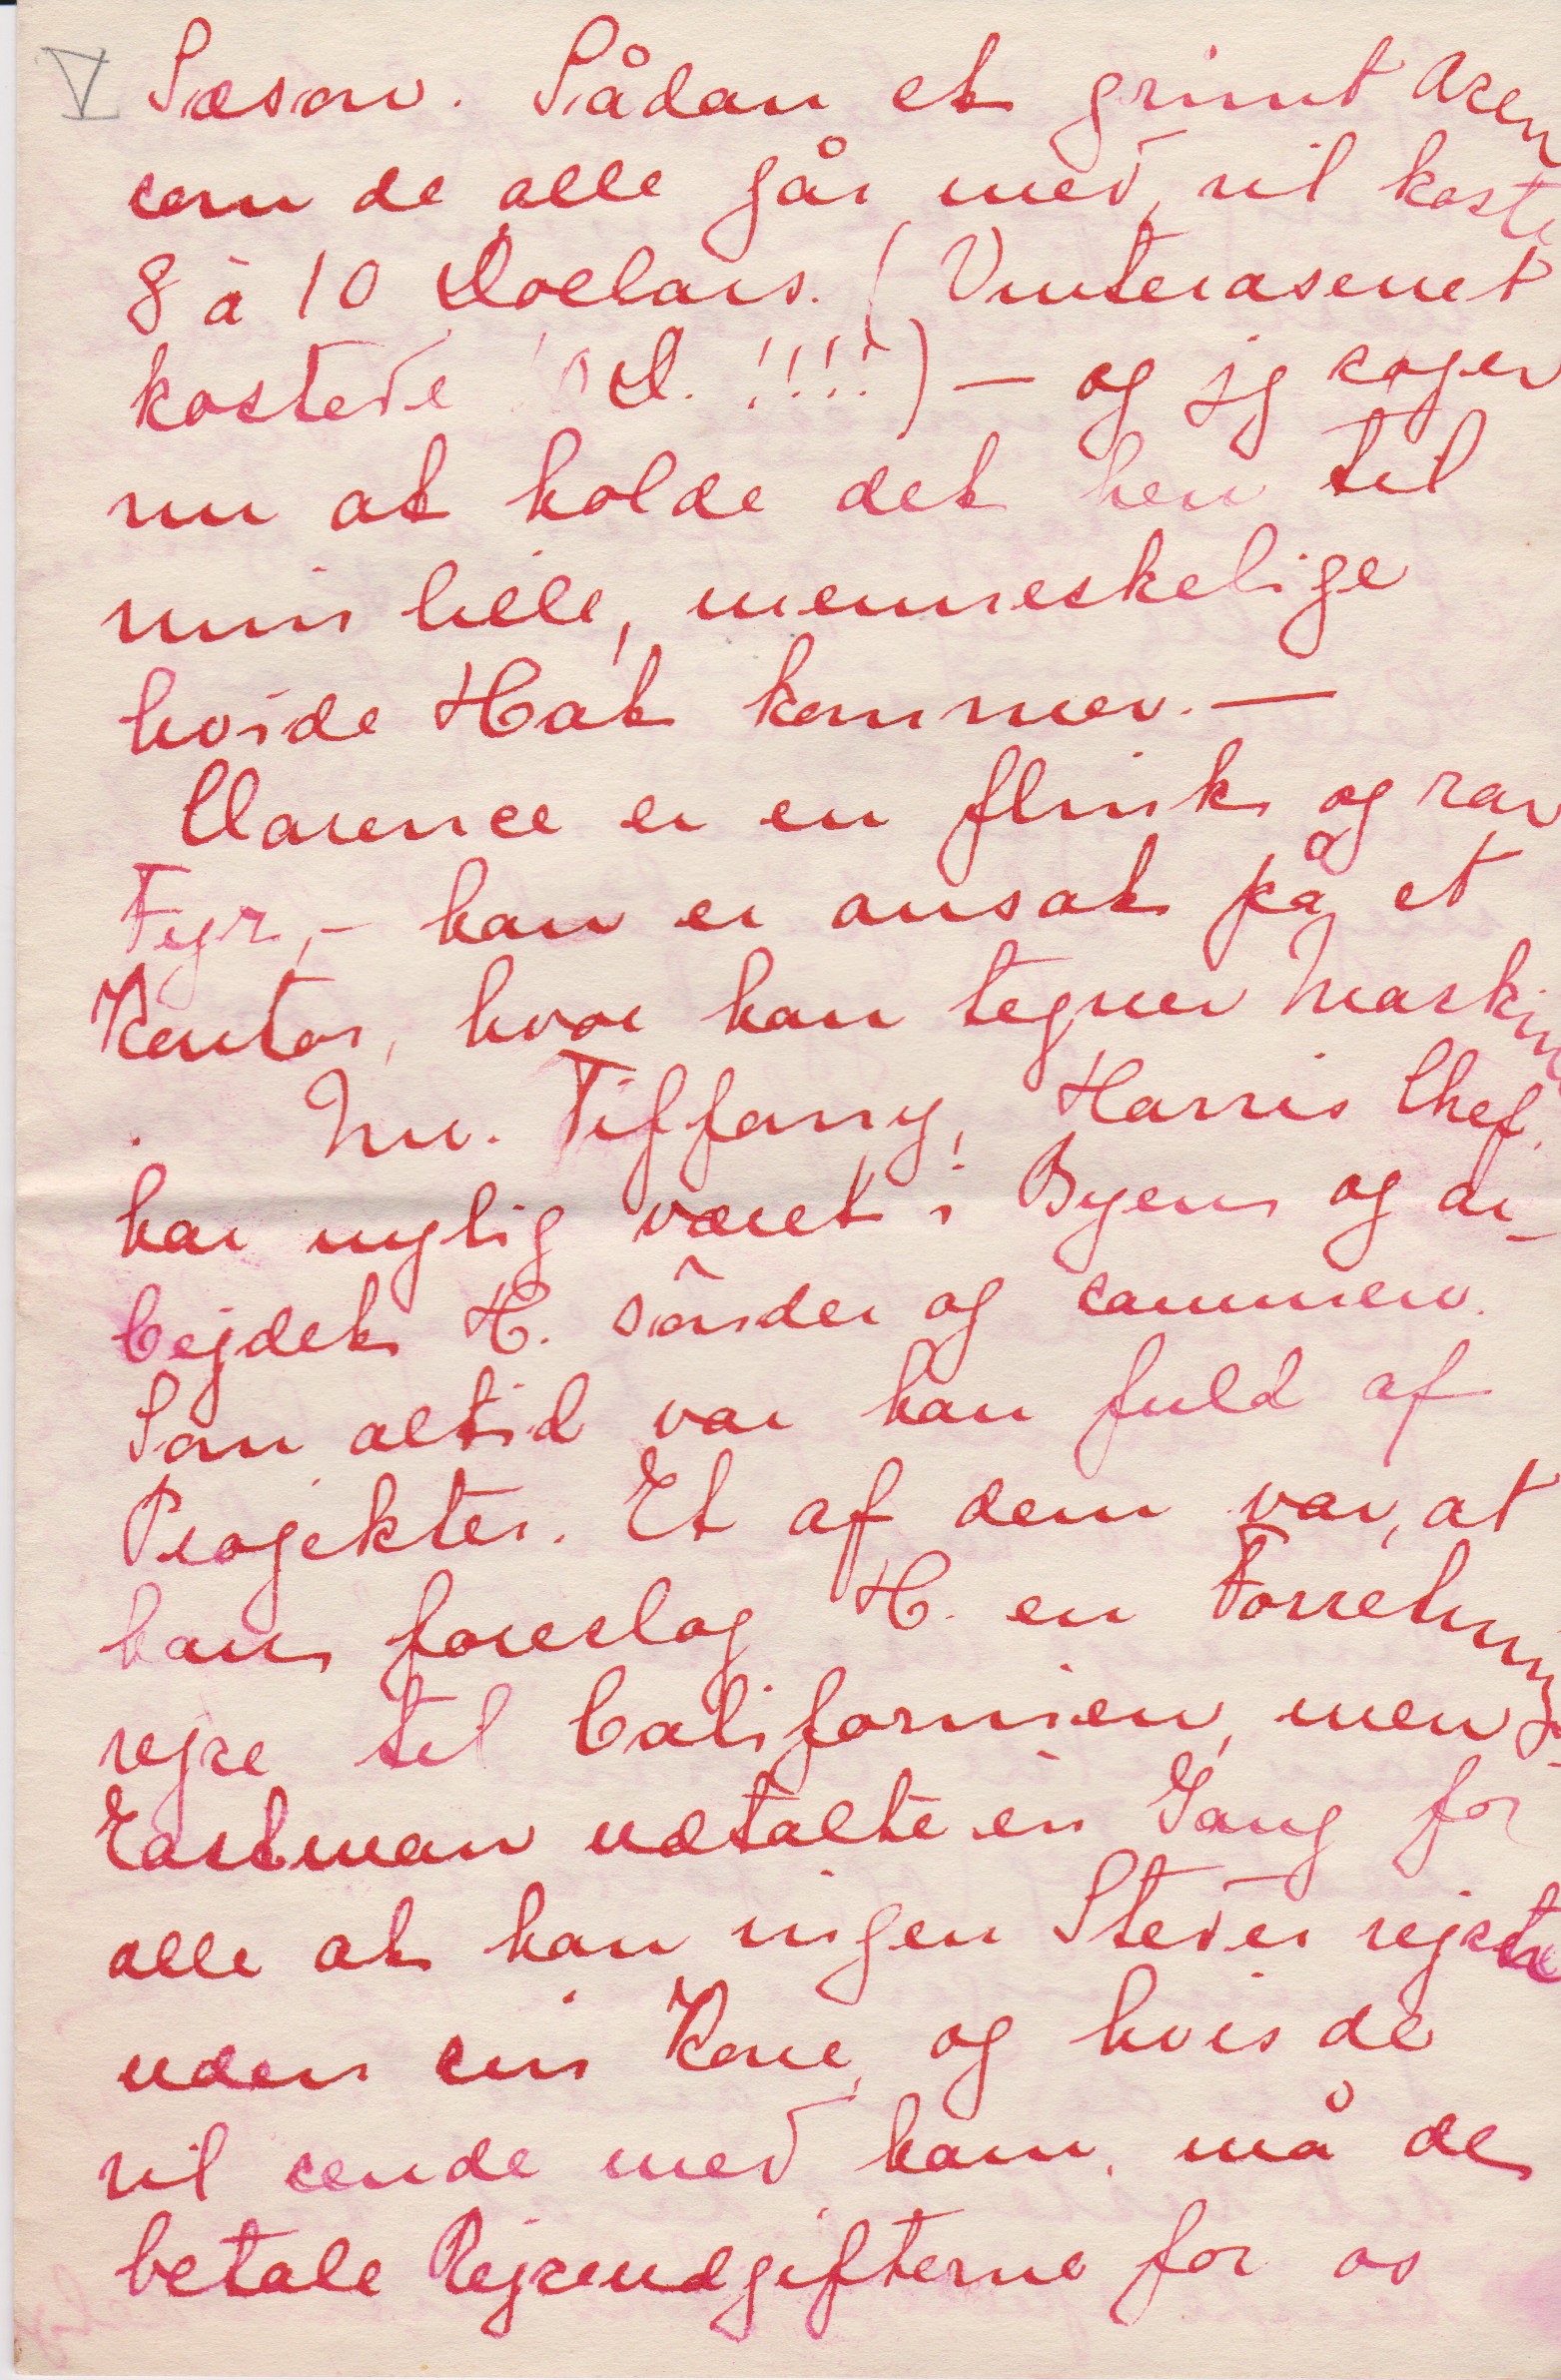 V Sæson. Sådan et grimt Asen
som de alle går med, vil koste
8 à 10 Dollars. (Vinterasenet
kostede D. !!!!) — og jeg søger
nu at holde det hen til
min lille, menneskelige
hvide Hat kommer. —
Clarence er en flink og rar
Fyr, — han er ansat på et
Kontor, hvor han tegner Maskin
. Mr. Tiffany, Harris Chef,
har nylig været i Byen og ar-
bejdet H. sønder og sammen.
Som altid var han fuld af
Projekter. Et af dem var, at
han foreslog H. en Forretnings
rejse til Californien, men
Eastman udtalte en Gang for
alle at han ingen Steder rejste
uden sin Kone, og hvis de
vil sende med ham, må de
betale Rejseudgifterne for os